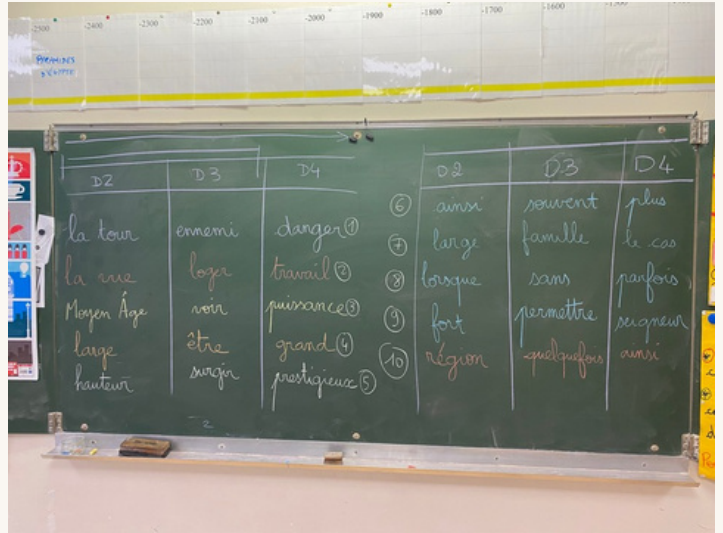 -2500 -2400 -2300 -2200 -2100 -2000 -1900 -1800 -1700 -1600 -1500
D2 D3 D4
la tour ennemi danger ①
la vue loger travail ②
Moyen Âge voir puissance ③
large être grand ④
hauteur surgir prestigieux ⑤
2
D2 D3 D4
⑥ ainsi souvent plus
⑦ large famille le cas
⑧ lorsque sans parfois
⑨ fort permettre seigneur
⑩ région quelquefois ainsi